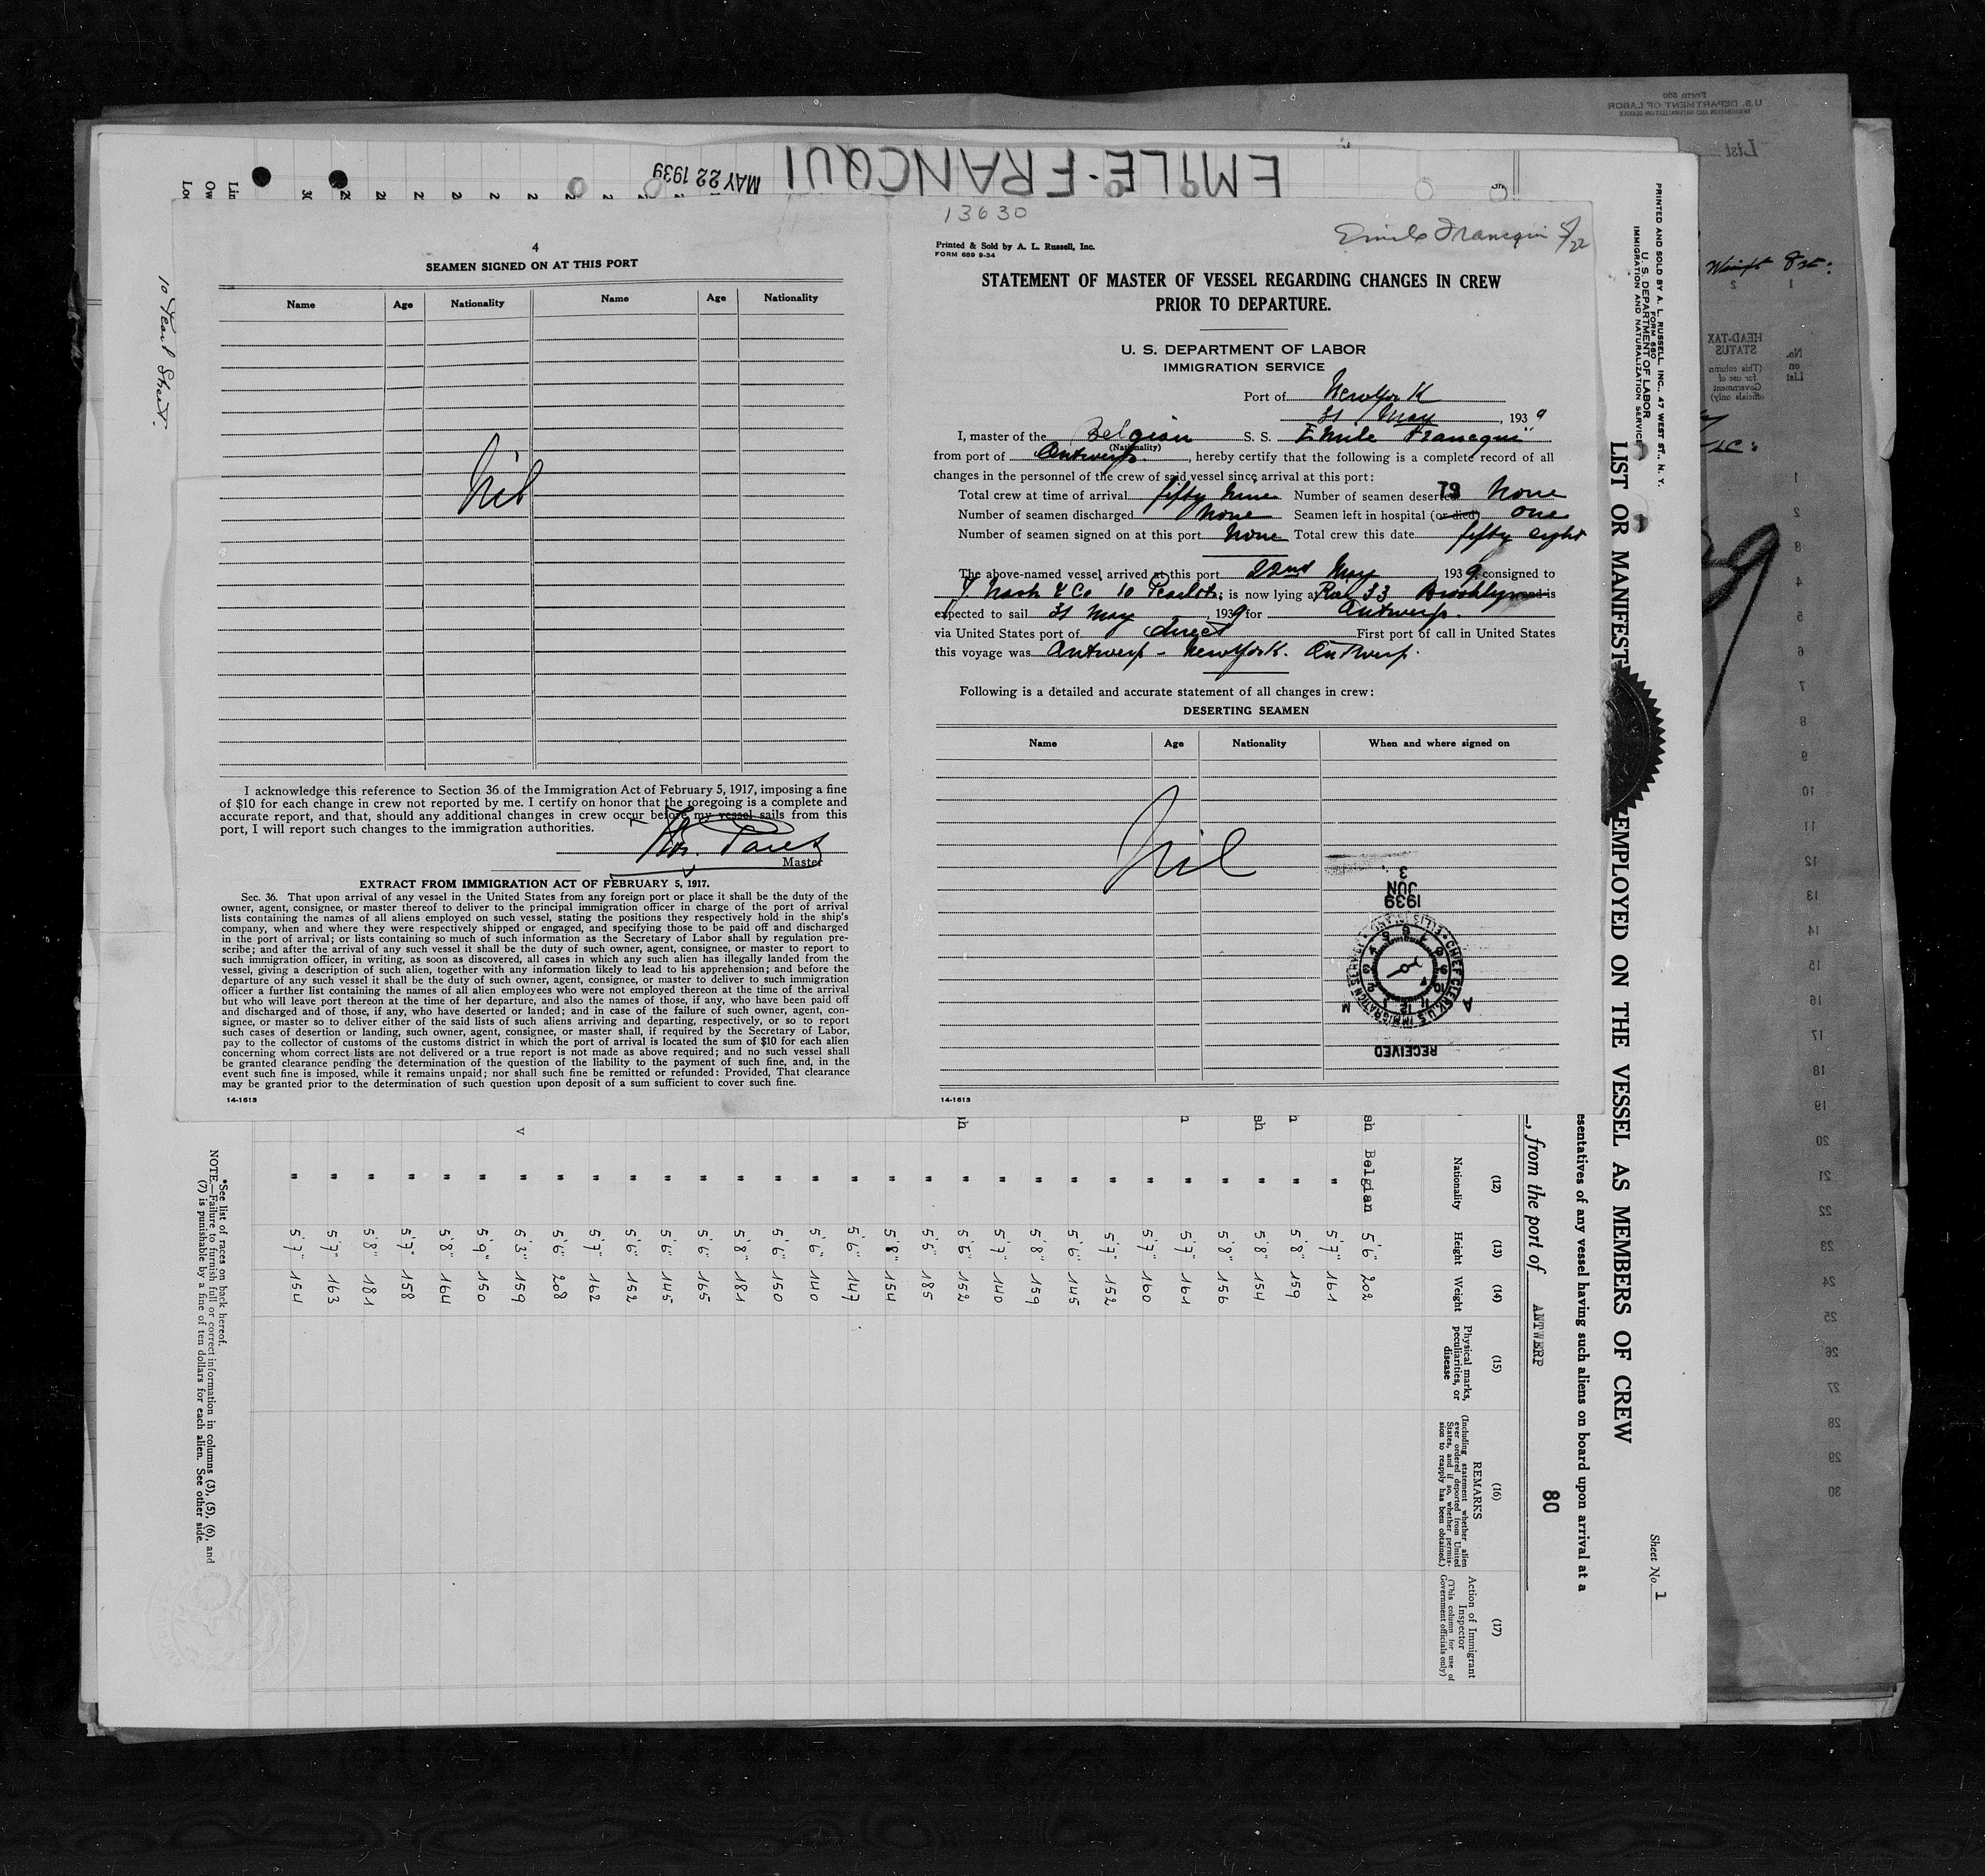 EMILE-FRANCQUI
MAY 22 1939
4
SEAMEN SIGNED ON AT THIS PORT
Name Age Nationality Name Age Nationality
Nil
I acknowledge this reference to Section 36 of the Immigration Act of February 5, 1917, imposing a fine
of $10 for each change in crew not reported by me. I certify on honor that the foregoing is a complete and
accurate report, and that, should any additional changes in crew occur before my vessel sails from this
port, I will report such changes to the immigration authorities.
Master
EXTRACT FROM IMMIGRATION ACT OF FEBRUARY 5, 1917.
Sec. 36. That upon arrival of any vessel in the United States from any foreign port or place it shall be the duty of the
owner, agent, consignee, or master thereof to deliver to the principal immigration officer in charge of the port of arrival
lists containing the names of all aliens employed on such vessel, stating the positions they respectively hold in the ship's
company, when and where they were respectively shipped or engaged, and specifying those to be paid off and discharged
in the port of arrival; or lists containing so much of such information as the Secretary of Labor shall by regulation pre-
scribe; and after the arrival of any such vessel it shall be the duty of such owner, agent, consignee, or master to report to
such immigration officer, in writing, as soon as discovered, all cases in which any such alien has illegally landed from the
vessel, giving a description of such alien, together with any information likely to lead to his apprehension; and before the
departure of any such vessel it shall be the duty of such owner, agent, consignee, or master to deliver to such immigration
officer a further list containing the names of all alien employees who were not employed thereon at the time of the arrival
but who will leave port thereon at the time of her departure, and also the names of those, if any, who have been paid off
and discharged and of those, if any, who have deserted or landed; and in case of the failure of such owner, agent, con-
signee, or master so to deliver either of the said lists of such aliens arriving and departing, respectively, or so to report
such cases of desertion or landing, such owner, agent, consignee, or master shall, if required by the Secretary of Labor,
pay to the collector of customs of the customs district in which the port of arrival is located the sum of $10 for each alien
concerning whom correct lists are not delivered or a true report is not made as above required; and no such vessel shall
be granted clearance pending the determination of the question of the liability to the payment of such fine, and, in the
event such fine is imposed, while it remains unpaid; nor shall such fine be remitted or refunded: Provided, That clearance
may be granted prior to the determination of such question upon deposit of a sum sufficient to cover such fine.
14-1613
13630
Emile Francqui 5/22
Printed & Sold by A. L. Russell, Inc.
FORM 689 9-34
STATEMENT OF MASTER OF VESSEL REGARDING CHANGES IN CREW
PRIOR TO DEPARTURE.
U. S. DEPARTMENT OF LABOR
IMMIGRATION SERVICE
Port of New York
31 May, 1939
I, master of the Belgian S. S. Emile Francqui"
(Nationality)
from port of Antwerp, hereby certify that the following is a complete record of all
changes in the personnel of the crew of said vessel since arrival at this port:
Total crew at time of arrival fifty nine Number of seamen deserted 79 None
Number of seamen discharged None Seamen left in hospital (or died) one
Number of seamen signed on at this port None Total crew this date fifty eight
The above-named vessel arrived at this port 22nd May 1939 consigned to
T Nash & Co 10 Pearl str; is now lying at Pier 33 Brooklyn and is
expected to sail 31 May, 1939 for Antwerp.
via United States port of direct First port of call in United States
this voyage was Antwerp - New York. Antwerp.
Following is a detailed and accurate statement of all changes in crew:
DESERTING SEAMEN
Name Age Nationality When and where signed on
Nil
1939 JUN 3
CHIEF CLERK, U.S. IMMIGRATION SERVICE ELLIS ISLAND
A M
RECEIVED
14-1613
10 Pearl Street.
PRINTED AND SOLD BY A. L. RUSSELL, INC., 47 WEST ST., N. Y.
FORM 680
U. S. DEPARTMENT OF LABOR
IMMIGRATION AND NATURALIZATION SERVICE
Sheet No. 1
LIST OR MANIFEST EMPLOYED ON THE VESSEL AS MEMBERS OF CREW
esentatives of any vessel having such aliens on board upon arrival at a
80
, from the port of ANTWERP
(12) (13) (14) (15) (16) (17)
Nationality Height Weight Physical marks, peculiarities, or disease REMARKS Action of Immigrant Inspector
(Including statement whether alien ever ordered deported from United States, and if so, whether permission to reapply has been obtained.)
(This column for use of Government officials only)
sh Belgian 5'6" 202
" 5'7" 161
" 5'8" 159
" 5'8" 154
" 5'8" 156
" 5'7" 161
" 5'7" 160
" 5'7" 152
" 5'6" 145
" 5'8" 159
" 5'7" 140
" 5'6" 152
" 5'5" 185
" 5'8" 154
" 5'6" 147
" 5'6" 140
" 5'6" 150
" 5'8" 181
" 5'6" 165
" 5'6" 145
" 5'6" 152
" 5'7" 162
" 5'6" 208
" 5'3" 159
" 5'9" 150
" 5'8" 164
" 5'7" 158
" 5'8" 181
" 5'7" 163
" 5'7" 154
*See list of races on back hereof.
NOTE.—Failure to furnish full or correct information in columns (3), (5), (6), and
(7) is punishable by a fine of ten dollars for each alien. See other side.
Form 500
U. S. DEPARTMENT OF LABOR
IMMIGRATION AND NATURALIZATION SERVICE
List
HEAD-TAX STATUS
(This column for use of Government officials only)
No. on List
1
2
3
4
5
6
7
8
9
10
11
12
13
14
15
16
17
18
19
20
21
22
23
24
25
26
27
28
29
30